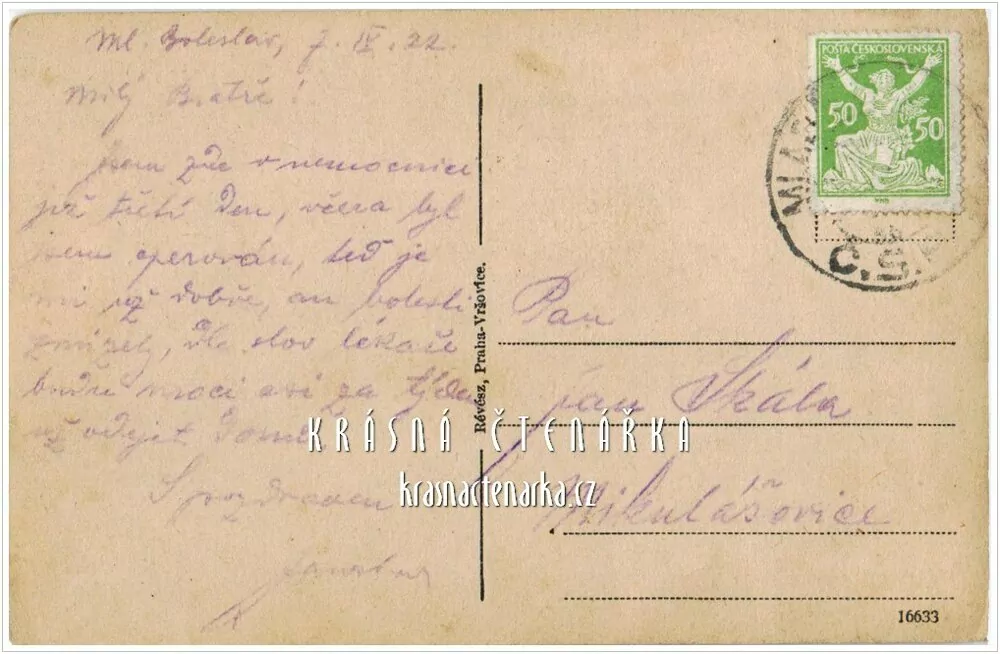 Ml. Boleslav, 7. IX. 22.
Milý Bratře!
jsem zde v nemocnici
již třetí den, včera byl
jsem operován, teď je
mi už dobře, an bolesti
zmizely, dle slov lékaře
budu moci asi za týden
už odejet domů.
S pozdravem
POŠTA ČESKOSLOVENSKÁ
50 50
MLAD
Č.S.
Révész, Praha-Vršovice.
Pan
Jan Skála
Mikulášovice
KRÁSNÁ ČTENÁŘKA
krasnactenarka.cz
16633